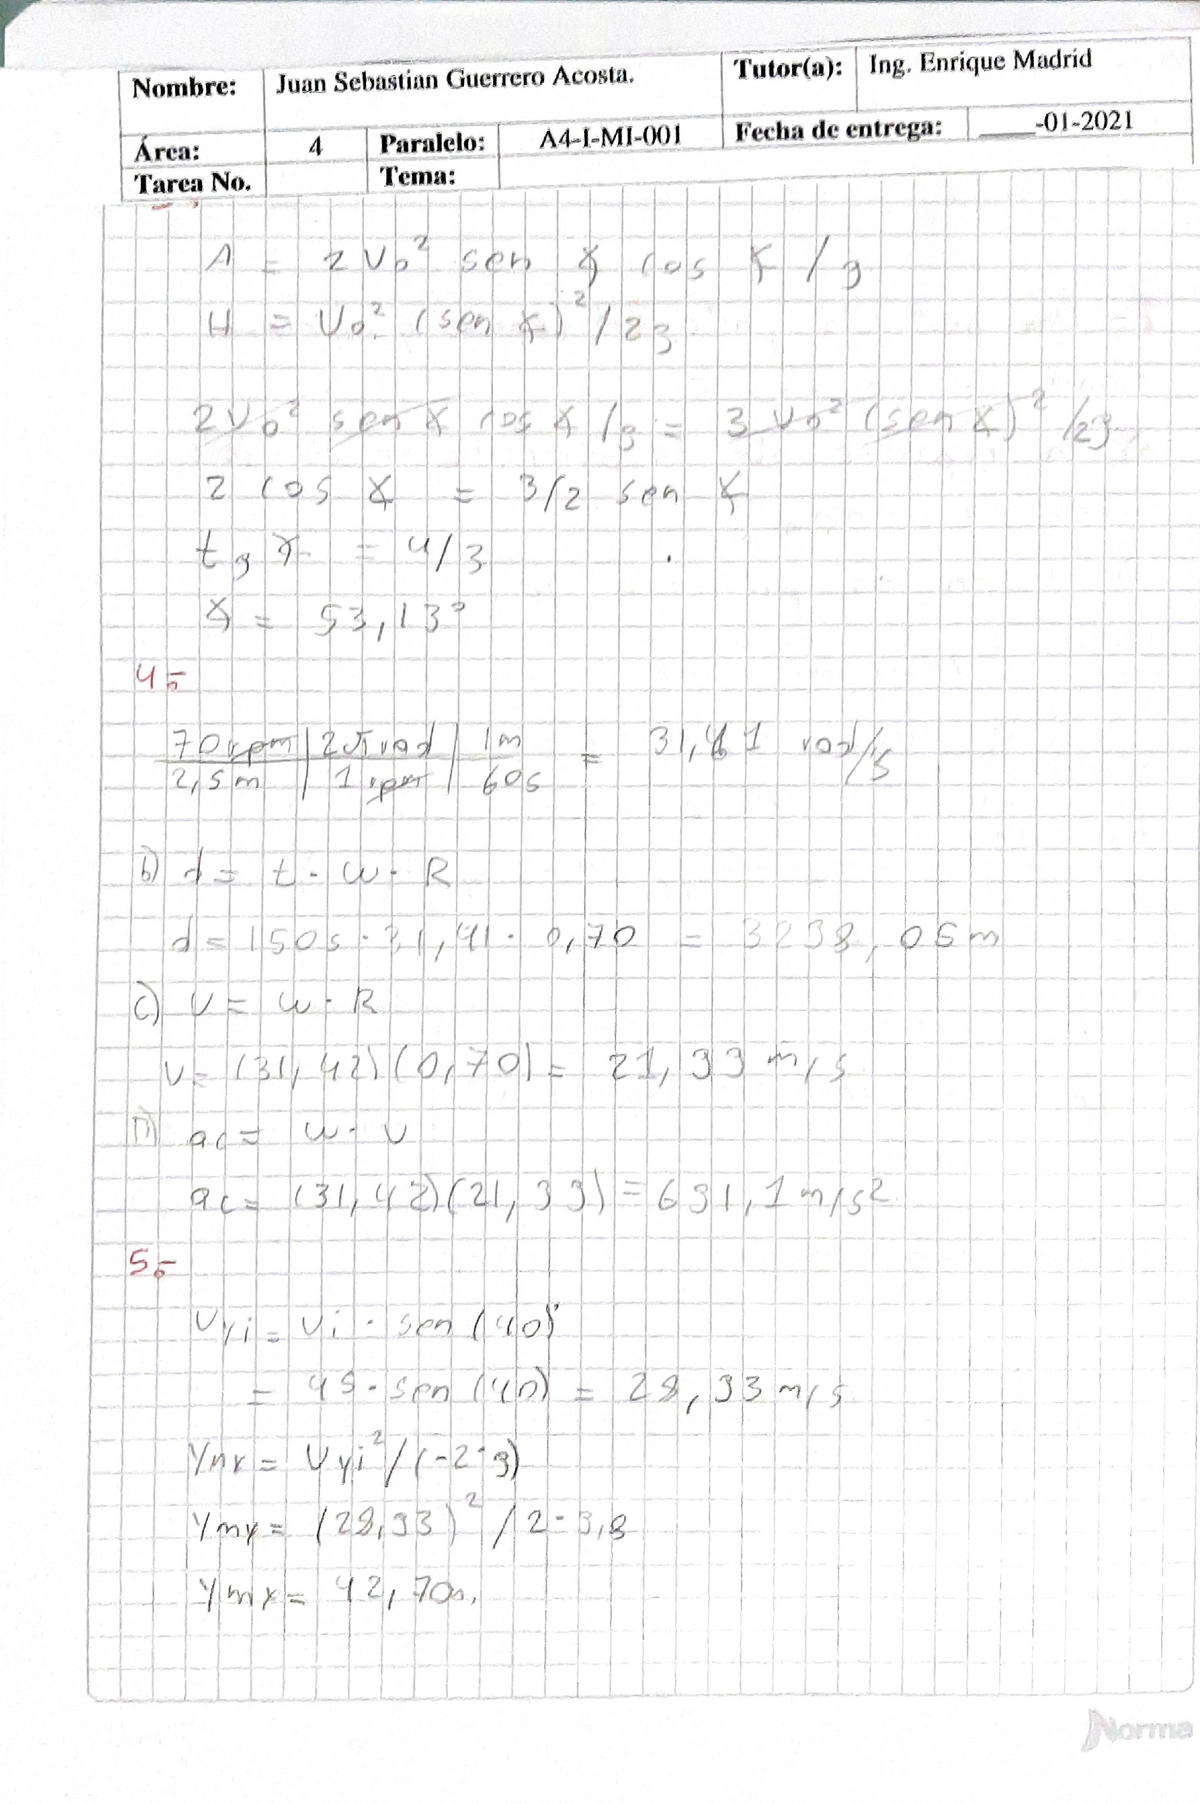 Nombre: Juan Sebastian Guerrero Acosta. Tutor(a): Ing. Enrique Madrid
Área: 4 Paralelo: A4-I-MI-001 Fecha de entrega: ____-01-2021
Tarea No. Tema:
A = 2Vo² sen ∡ cos ∡ / g
H = Vo² (sen ∡)² / 2g
2Vo² sen ∡ cos ∡ / g = 3 Vo² (sen ∡)² / 2g
2 cos ∡ = 3/2 sen ∡
tg ∡ = 4/3
∡ = 53,13°
4.-
70 rpm | 2π rad | 1m = 31,41 rad/s
2,5m | 1 rpm | 60s
b) d = t · w · R
d = 150s · 31,41 · 0,70 = 3298,05m
c) V = w · R
V = (31,42) (0,70) = 21,99 m/s
D) ac = w · v
ac = (31,42) (21,99) = 691,1 m/s²
5.-
Vyi = Vi · sen (40)
= 45 · sen (40) = 28,93 m/s
Ymx = Vyi² / (-2·g)
Ymx = (28,93)² / 2·9,8
Ymx = 42,70m.
Norma